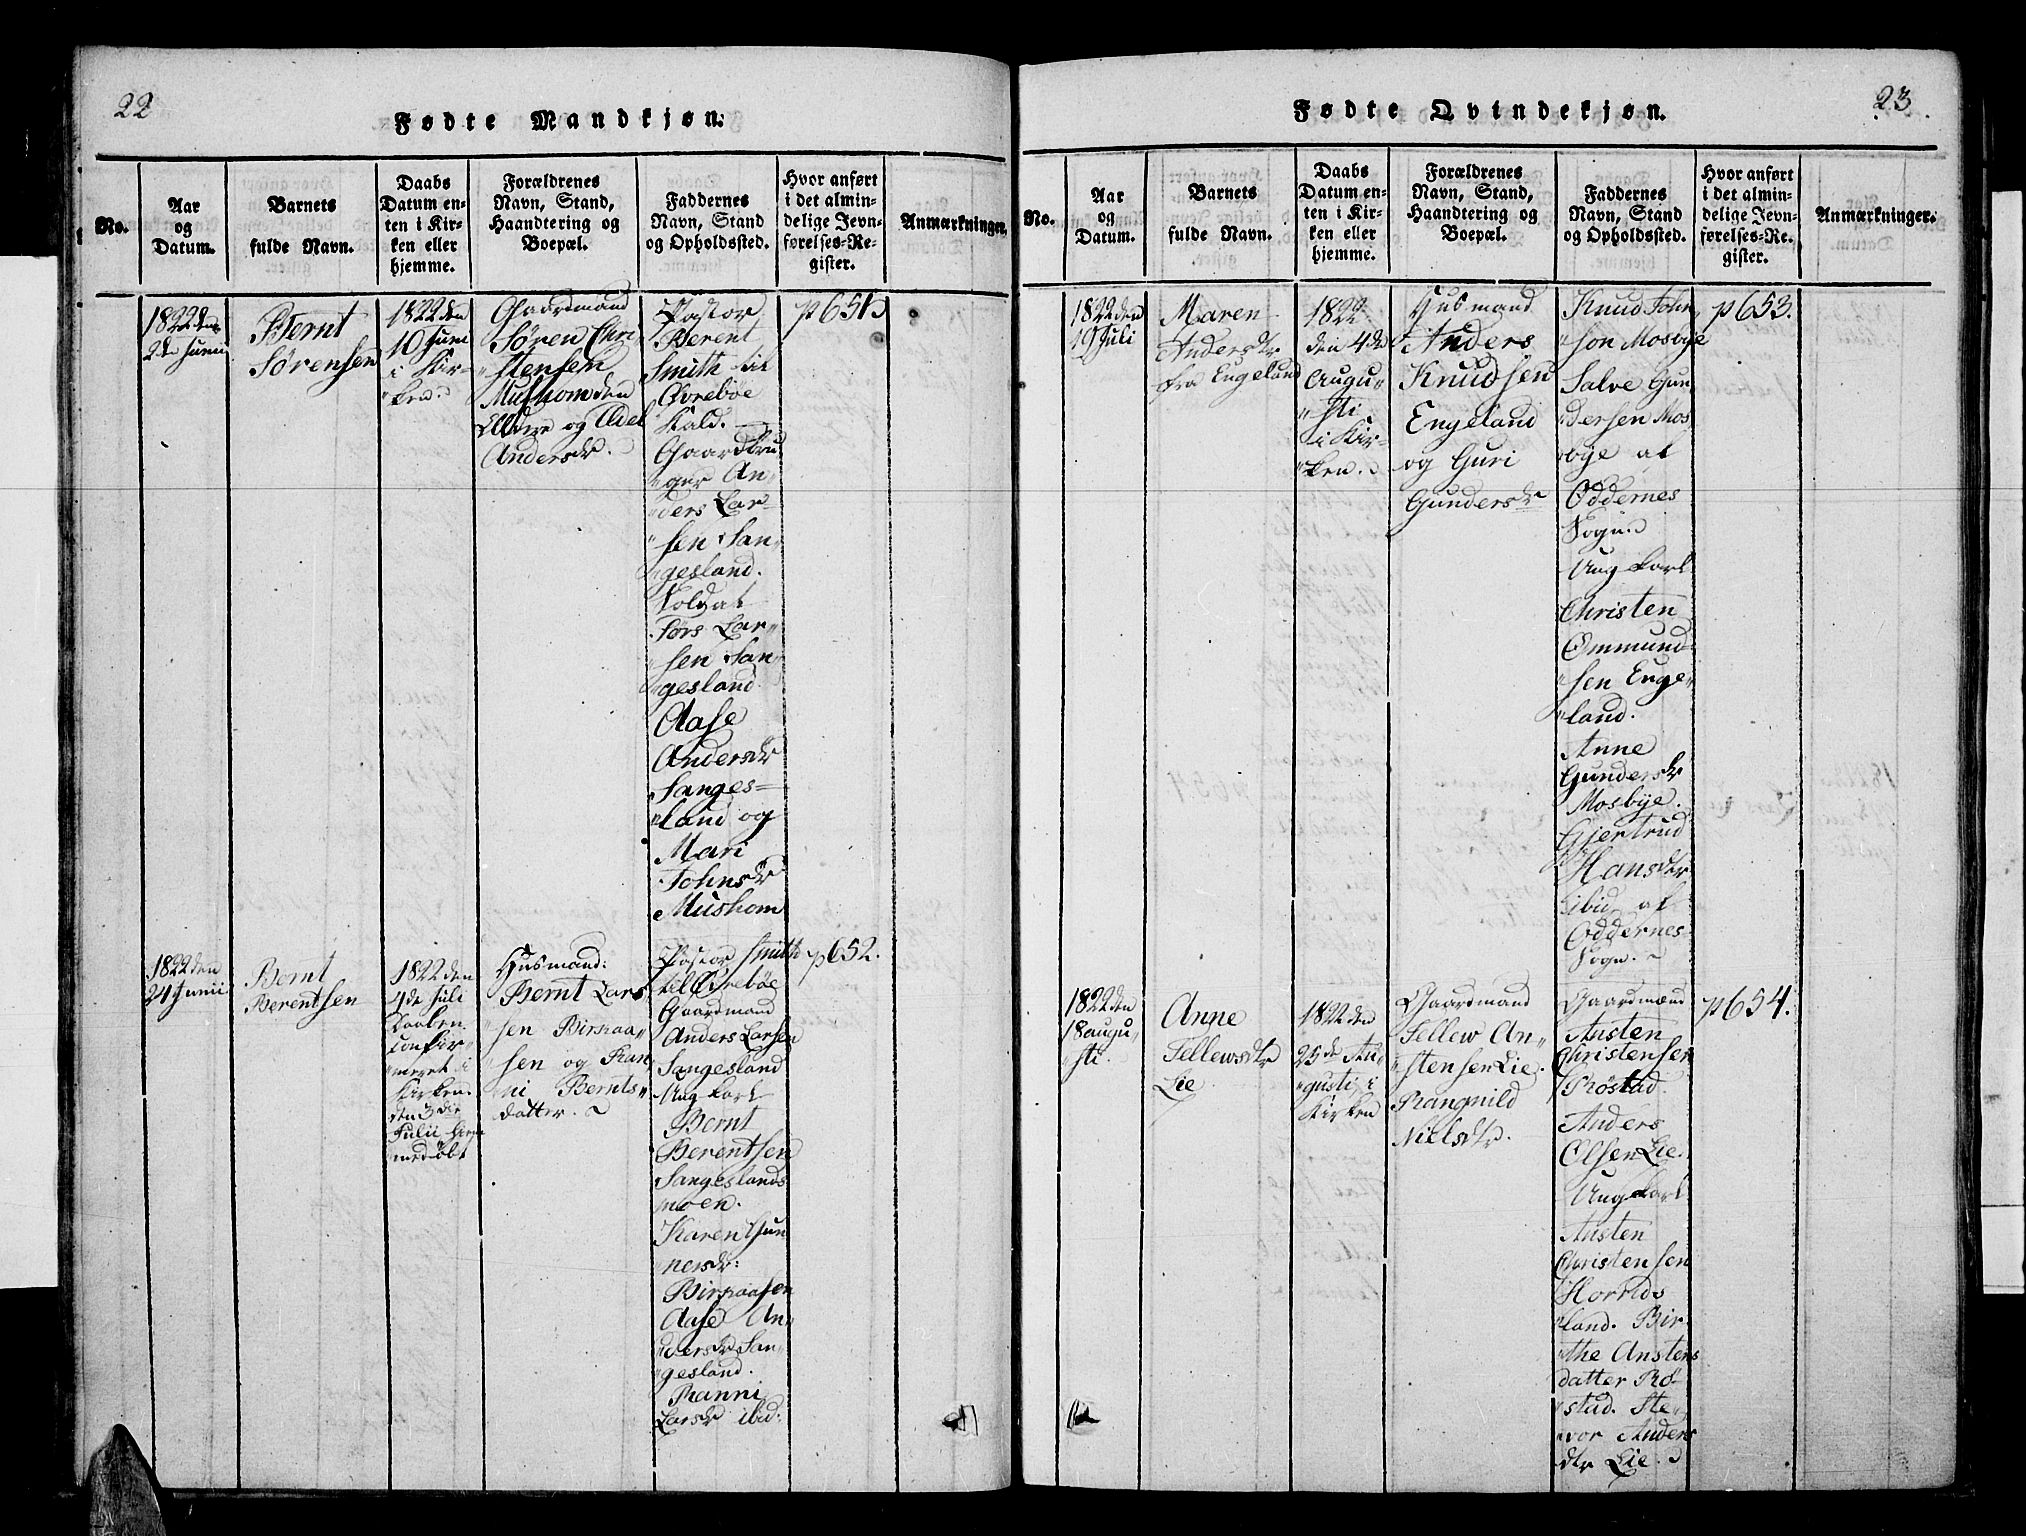 22
Fødte Mandkjøn.
No.
Aar
og
Datum.
Barnets
fulde Navn.
Daabs
Datum en-
ten i Kir-
ken eller
hjemme.
Forældrenes
Navn, Stand,
Haandtering og
Boepæl.
Faddernes
Navn, Stand
og Opholdssted.
Hvor anført
i det almin-
delige Jevn-
førelses-Re-
gister.
Anmærkninger.
1822 den
2de Junii
Bernt
Sørensen
1822 den
10 Juni
i Kir-
"ken.
Gaardmand
Søren Chri
"stensen
Mushom den
Eldre og Adel
Andersdr.
Pastor
Berent
Smith til
Øvrebøe
Kald.
Gaardbru
"ger An
"ders Lar-
"sen San
"gesland.
Soldat
Førs Lar-
"sen San-
"gesland.
Aase
Andersdr
Sanges-
"land og
Mari
Johnsdr
Mushom
p 651
1822 den
24 Junii
Bernt
Berentsen
1822 den
4de Juli
Daaben
confir-
"meret i
Kirken.
den 3die
Julii hiem
medøbt
Husmand:
Bernt Lars
"sen Birkaa-
"sen og Ran
"ni Bernts-
datter.
Pastor Smith
til Øvrebøe
Gaardmand
Anders Larsen
Sangesland
Ung Karl
Bernt
Berentsen
Sangeslands
moen.
Karen Gun
nersdr:
Birkaasen
Aase An
"dersdr San
"gesland.
Ranni
Larsdr ibid:
p 652.
23
Fødte Qvindekjøn.
No.
Aar
og
Datum.
Barnets
fulde Navn.
Daabs
Datum en-
ten i Kir-
ken eller
hjemme.
Forældrenes
Navn, Stand,
Haandtering og
Boepæl.
Faddernes
Navn, Stand
og Opholdssted.
Hvor anført
i det almin-
delige Jevn-
førelses-Re-
gister.
Anmærkninger.
1822 den
19 Juli
Maren
Andersdr
fra Engeland
1822
den 4de
Augu
"sti
i Kir-
"ken.
Husmand
Anders
Knudsen
Engeland
og Guri
Gundersdr
Knud John
"son Mosbye
Salve Gun
"dersen Mos
"bye af
Oddernes
Sogn.
Ung Karl
Christen
Ommund
"sen Enge
"land.
Anne
Gundersdr
Mosbye.
Gjertrud
Hansdtr
ibid. af
Oddernes
Sogn.
p 653.
1822 den
18 augu
"sti.
Anne
Tellewsdtr
Lie
1822 den
25de Au
"gusti i
Kirken
Gaardmand
Tellew An-
"stensen Lie.
Rangnild
Nielsdtr.
Gaardmænd
Ansten
Christensen
Røstad.
Anders
Olsen Lie.
Ung Karl
Ansten
Christensen
Horrids
"land. Bir
"the Anstens
datter Rø-
"stad. Ste
"vor Anders
dtr Lie.
p 654.